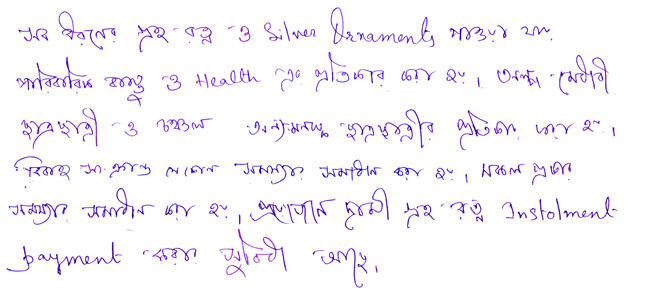 সব ধরনের গ্রহ রত্ন ও Silver Ornaments পাওয়া যায়
পারিবারিক বাস্তু ও Health এর প্রতিকার করা হয়। অল্প মেধাবী
ছাত্রছাত্রী ও চঞ্চল অন্যমনস্ক ছাত্রছাত্রীর প্রতিকার করা হয়।
বিবাহ সংক্রান্ত যে কোন সমস্যার সমাধান করা হয়। সকল প্রকার
সমস্যার সমাধান করা হয়। প্রয়োজনে দামী গ্রহ রত্ন Instolment
payment করার সুবিধা আছে।